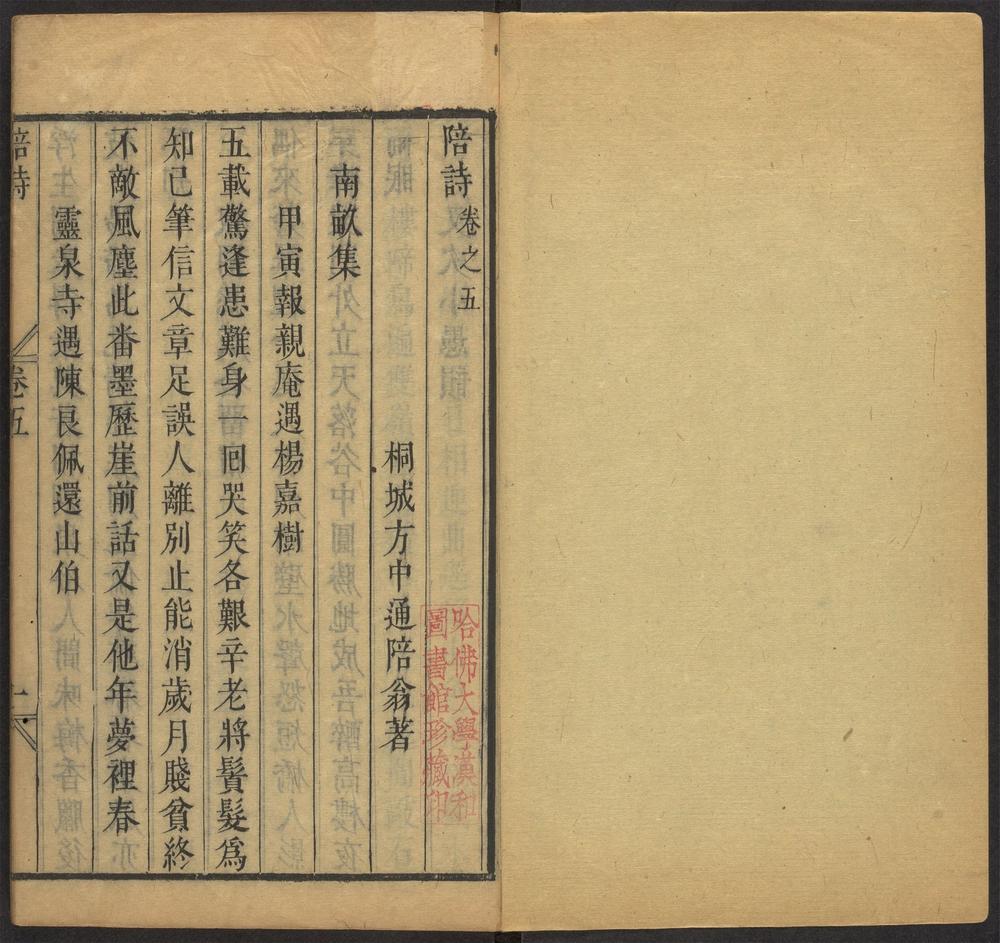 陪詩卷之五
桐城方中通陪翁著
南畝集
甲寅報親庵遇楊嘉樹
五載驚逢患難身一回哭笑各艱辛老將鬢髮爲
知已筆信文章足誤人離別止能消歲月賤貧終
不敵風塵此番墨歷崖前話又是他年夢裡春
靈泉寺遇陳良佩還山伯
陪詩
卷五
一
哈佛大學漢和
圖書館珍藏印